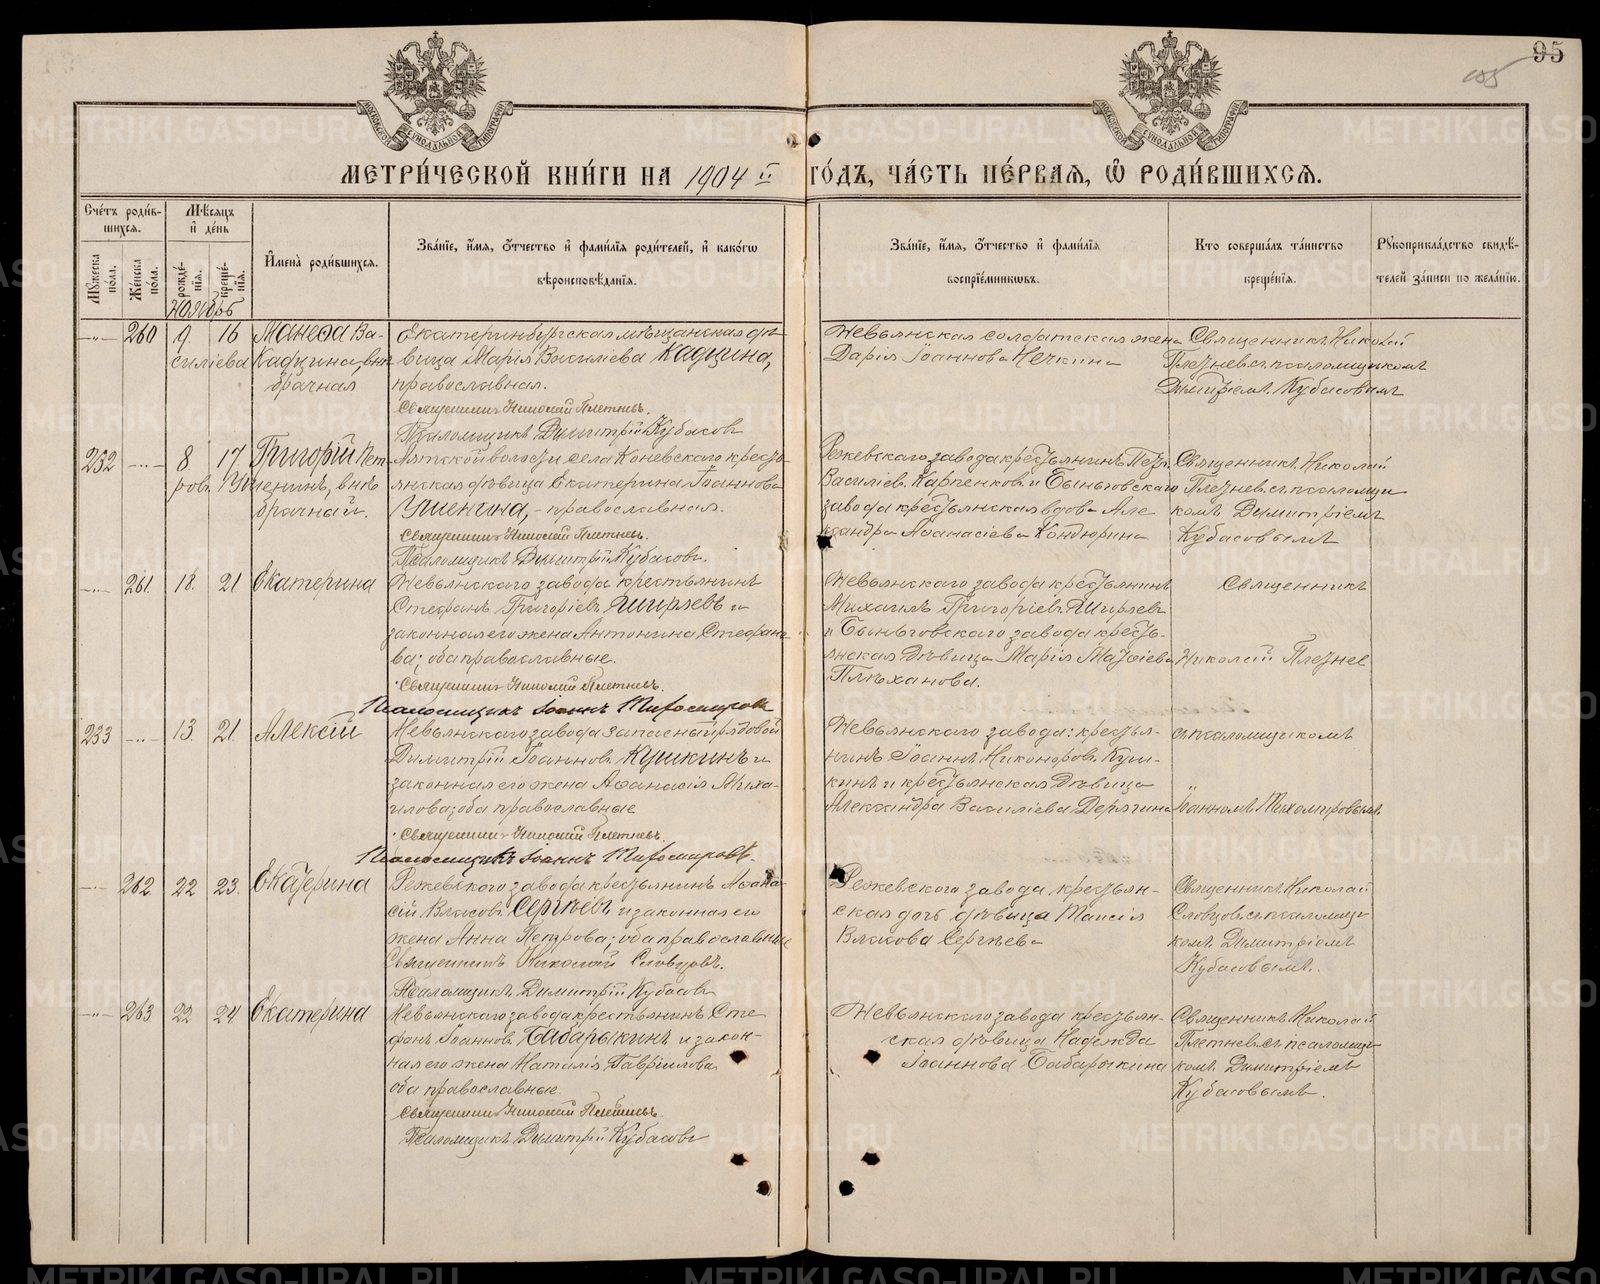 95
МЕТРИ́ЧЕСКОЙ КНИ́ГИ НА 1904 й ГО́ДЪ, ЧА́СТЬ ПЕ́РВАЯ, Ѡ РОДИ́ВШИХСЯ.
Сче́тъ роди́в-
шихся.
Мꙋ́жеска по́ла.
Же́нска по́ла.
Мѣ́сяцъ и де́нь
рожде́нія.
креще́нія.
Имена̀ роди́вшихся.
Зва́ніе, и́мя, о́тчество и фами́лія роди́телей, и како́гѡ
вѣроисповѣ́данія.
Зва́ніе, и́мя, о́тчество и фами́лія
воспріе́мникѡвъ.
Кто̀ соверша́лъ та́инство
креще́нія.
Рꙋкоприкла́дство свидѣ́-
телей за́писи по жела́нію.
Ноябрь
-"- 260 9. 16
Ва-
силіева Кадцина, внѣ
брачная
Екатеринбургская мѣщанская дѣ-
вица Марія Василіева Кадцина,
православная.
Священникъ Николай Плетневъ.
Псаломщикъ Димитрій Кубасовъ
Невьянская солдатская жена
Дарія Іоаннова Нечкина
Священникъ Николай
Плетневъ съ псаломщикомъ
Димитріемъ Кубасовымъ
232 -"- 8 17
Григорій Пет-
ровъ внѣ
брачный.
волости села Коневскаго кресть-
янская дѣвица Екатерина Іоаннова
православная.
Священникъ Николай Плетневъ.
Псаломщикъ Димитрій Кубасовъ.
Режевскаго завода крестьянинъ Петръ
Василіевъ Карпенковъ и Быньговскаго
завода крестьянская вдова Але-
ксандра Аѳанасіева Кондюрина
Священникъ Николай
Плетневъ съ псаломщи-
комъ Димитріемъ
Кубасовымъ
-"- 261. 18. 21
Екатерина
Невьянскаго завода крестьянинъ
Стефанъ Григоріевъ Ширяевъ и
законная его жена Антонина Стефано-
ва; оба православные.
Священникъ Николай Плетневъ.
Псаломщикъ Іоаннъ Тихомировъ
Невьянскаго завода крестьянинъ
Михаилъ Григоріевъ Ширяевъ
и Быньговскаго завода кресть-
янская дѣвица Марія Матѳіева
Плѣханова.
Священникъ
Николай Плетнев
233 -"- 13. 21.
Алексій
Невьянскаго завода запасный рядовой
Димитрій Іоанновъ Кушкинъ и
законная его жена Аѳанасія Миха-
илова; оба православные
Священникъ Николай Плетневъ
Псаломщикъ Іоаннъ Тихомировъ.
Невьянскаго завода: кресть-
янинъ Іоаннъ Никаноровъ Куш-
кинъ и крестьянская дѣвица
Александра Василіева Дерягина
съ псаломщикомъ
Іоанномъ Тихомировымъ
-"- 262 22 23.
Екатерина
Режевскаго завода крестьянинъ Аѳана-
сій Власовъ Сергѣевъ и законная его
жена Анна Петрова; оба православные
Священникъ Николай Словцовъ.
Псаломщикъ Димитрій Кубасовъ
Режевскаго завода крестьян-
ская дочь дѣвица Таисія
Власова Сергѣева
Священникъ Николай
Словцовъ съ псаломщи-
комъ Димитріемъ
Кубасовымъ.
-"- 263 22 24
Екатерина
Невьянскаго завода крестьянинъ Сте-
фанъ Іоанновъ Бабарыкинъ и закон-
ная его жена Наталія Гавріилова
оба православные
Священникъ Николай Плетневъ
Псаломщикъ Димитрій Кубасовъ
Невьянскаго завода крестьян-
ская дѣвица Надежда
Іоаннова Бабарыкина
Священникъ Николай
Плетневъ съ псаломщи-
комъ Димитріемъ
Кубасовымъ.
METRIKI.GASO-URAL.RU